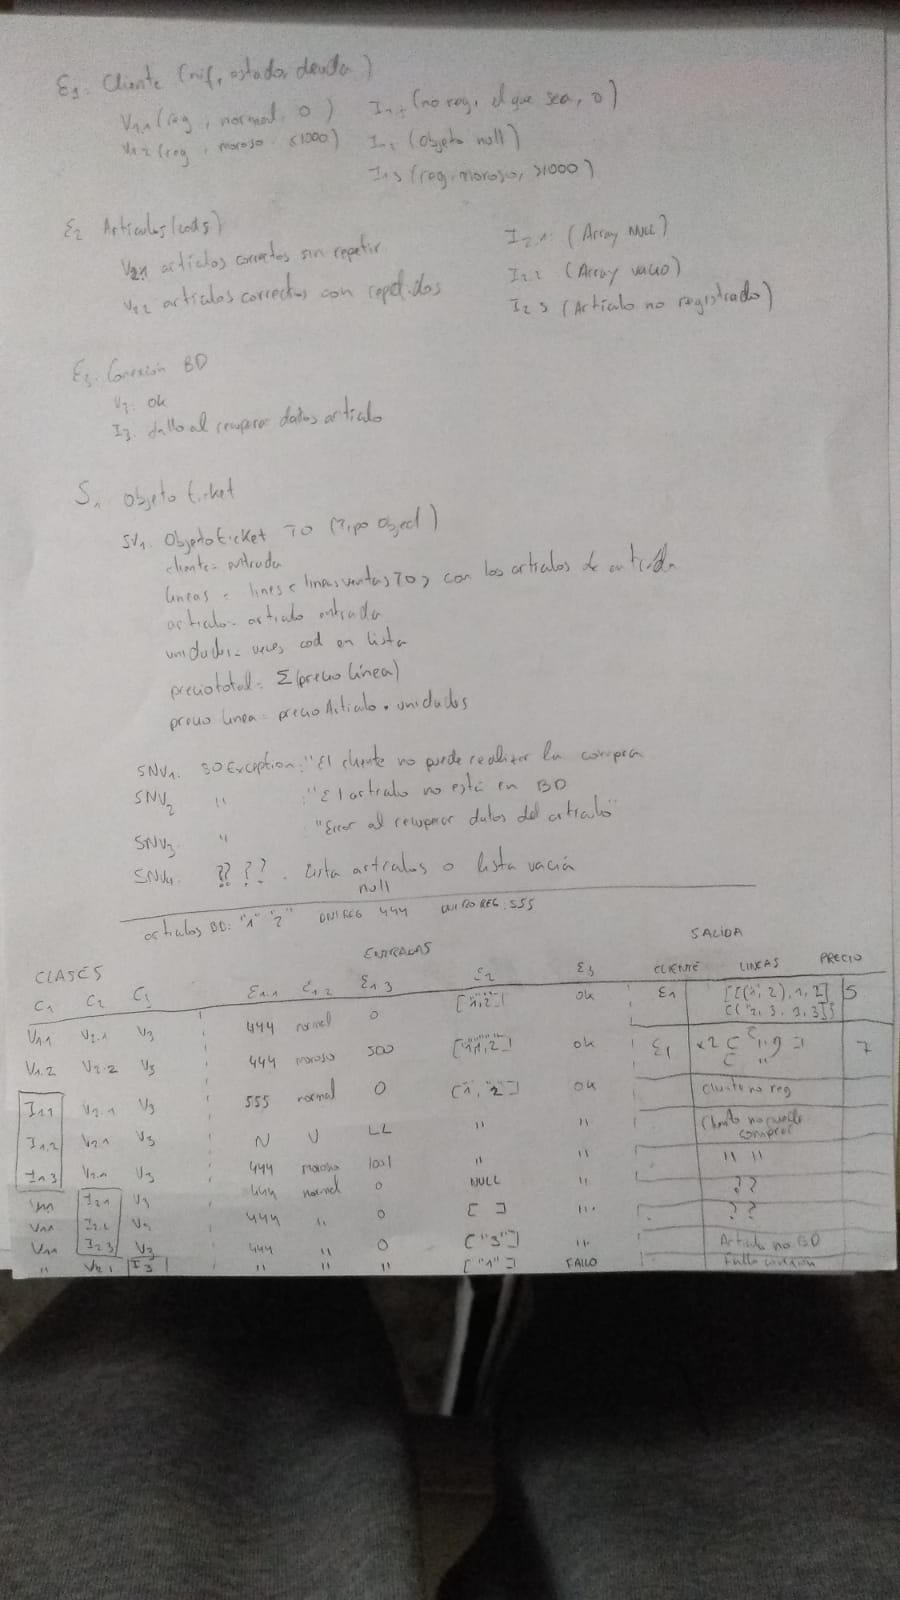 E1. Cliente (nif, estado, deuda)
V11 (reg, normal, 0) I11 (no reg, el que sea, 0)
V12 (reg, moroso <1000) I12 (objeto null)
I13 (reg, moroso, >1000)
E2 Artículos (cods)
V21 artículos correctos sin repetir I21: (Array NULL)
V22 artículos correctos con repetidos I22 (Array vacío)
I23 (Artículo no registrado)
E3. Conexión BD
V3. ok
I3. fallo al recuperar datos artículo
S1 Objeto ticket
SV1. Objeto ticket TO (Tipo Object)
cliente = entrada
líneas = lines < lineasventas TO > con los artículos de entrada
artículo = artículo entrada
unidades = veces cod en lista
precio total = Σ(precio línea)
precio línea = precio Artículo . unidades
SNV1. SO Exception: "El cliente no puede realizar la compra
SNV2 " : "El artículo no está en BD
SNV3 " "Error al recuperar datos del artículo"
SNV4. ?? ??. Lista artículos o lista vacía
null
artículos BD: "1" "2" DNI REG 444 DNI NO REG: 555
SALIDA
CLASES ENTRADAS CLIENTE LINEAS PRECIO
C1 C2 C3 E1.1 E1.2 E1.3 E2 E3
V11 V2.1 V3 444 normal 0 ["1","2"] ok E1 5
V1.2 V2.2 V3 444 moroso 500 ok E1 7
I11 V2.1 V3 555 normal 0 ["1","2"] ok Cliente no reg
I1.2 V2.1 V3 N U LL " " Cliente no puede comprar
I13 V2.1 V3 444 moroso 1001 " " " "
V11 I21 V3 444 normal 0 NULL " ??
V11 I2.2 V3 444 " 0 [ ] " ??
V11 I23 V3 444 " 0 ["3"] " Artículo no BD
" V21 I3 " " " ["1"] FALLO Fallo conexión